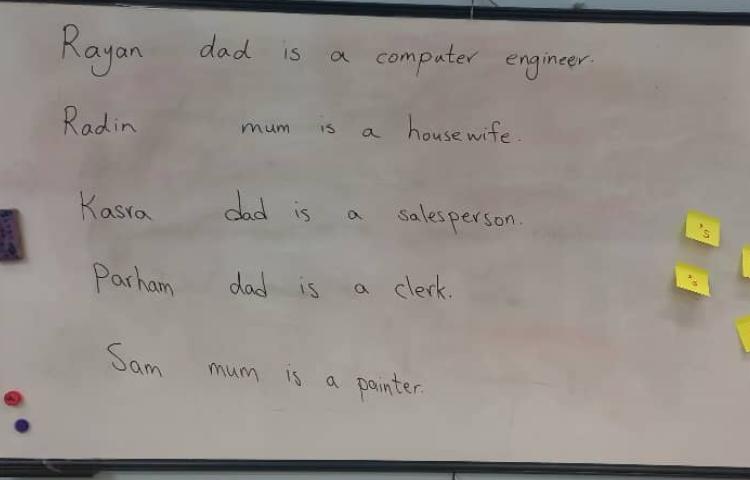 Rayan dad is a computer engineer.
Radin mum is a housewife.
Kasra dad is a salesperson.
's
Parham dad is a clerk.
's
Sam mum is a painter.